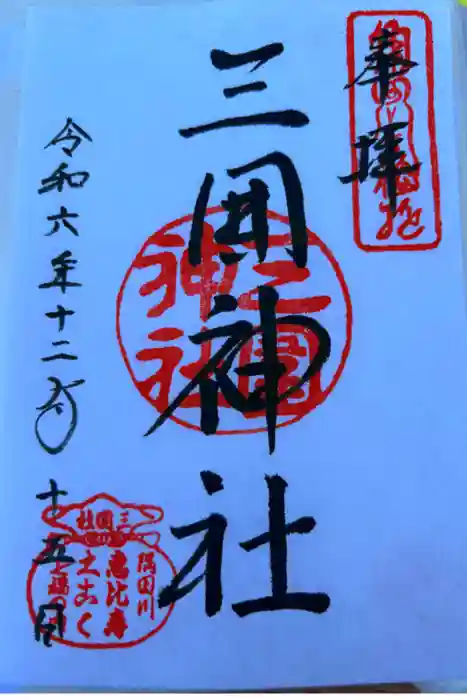 奉拝
三囲神社
三囲神社
令和六年十二月十五日
三囲社
隅田川
恵比寿
大こく